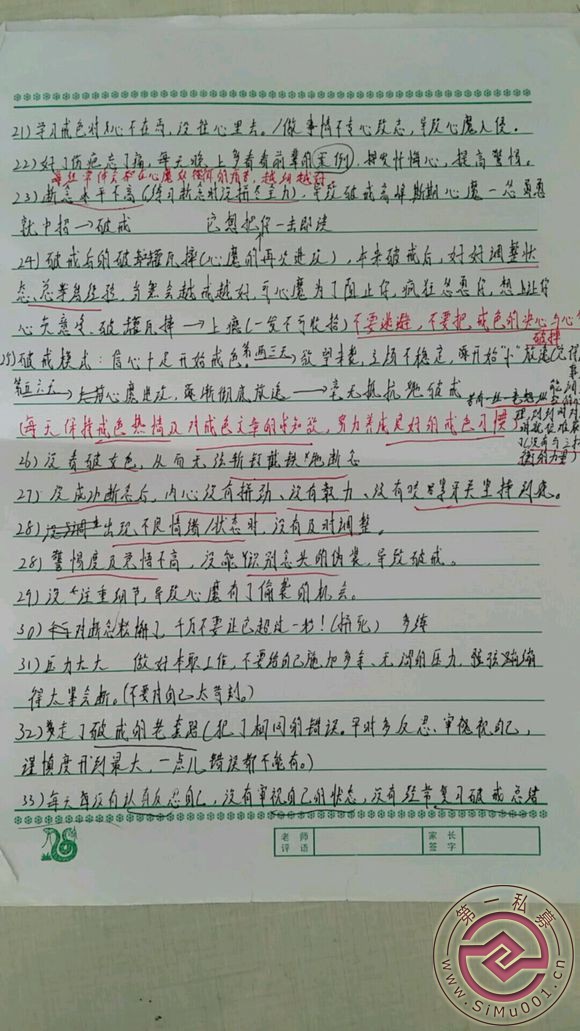 21)学习戒色时心不在焉,没往心里去。/做事情不专心致志,导致心魔入侵。
22)好了伤疤忘了痛,每天晚上多看看前辈的案例,提高警惕。
23)断念水平不高(练习断念时没拼尽全力),导致破戒高峰期心魔一怂恿
就中招→破戒 它想把你一击即溃
24)破戒后的破罐破摔(心魔的再次进攻),本来破戒后,好好调整状
态、总结经验,就会越戒越好,可心魔为了阻止你,疯狂怂恿你,想让你
心灰意冷、破罐破摔→上瘾(一发不可收拾)不要逃避,不要把戒色的决心
破摔
25)破戒模式:信心十足开始戒色,第两三天→欲望来袭,立场不稳定,再开始"小"放纵
第五六天→心魔进攻,逐渐彻底放纵→毫无抵抗地破戒
(每天保持戒色热情及对戒色文章的求知欲,努力养成良好的戒色习惯)
26)没看破女色,从而无法斩钉截铁地断念
27)没成功断念后,内心没有拼劲、没有毅力、没有咬紧牙关坚持到底。
28)出现不良情绪/状态时,没有及时调整。
28)警惕度及觉悟不高,没能识别念头的伪装,导致破戒。
29)没注重细节,导致心魔有了偷袭的机会。
30)对断念松懈了,千万不要让它超过一秒!(拼死) 多练
31)压力太大 做好本职工作,不要给自己施加多余、无谓的压力,弦绷
得太紧会断。(不要对自己太苛刻。)
32)多走了破戒的老套路(犯了相同的错误。平时多反思、审视自己,
谨慎度开到最大,一点儿错误都不能有。)
33)每天没有认真反思自己,没有审视自己的状态,没有经常复习破戒总结
老师
评语
家长
签字
第一私募
www.SiMu001.cn